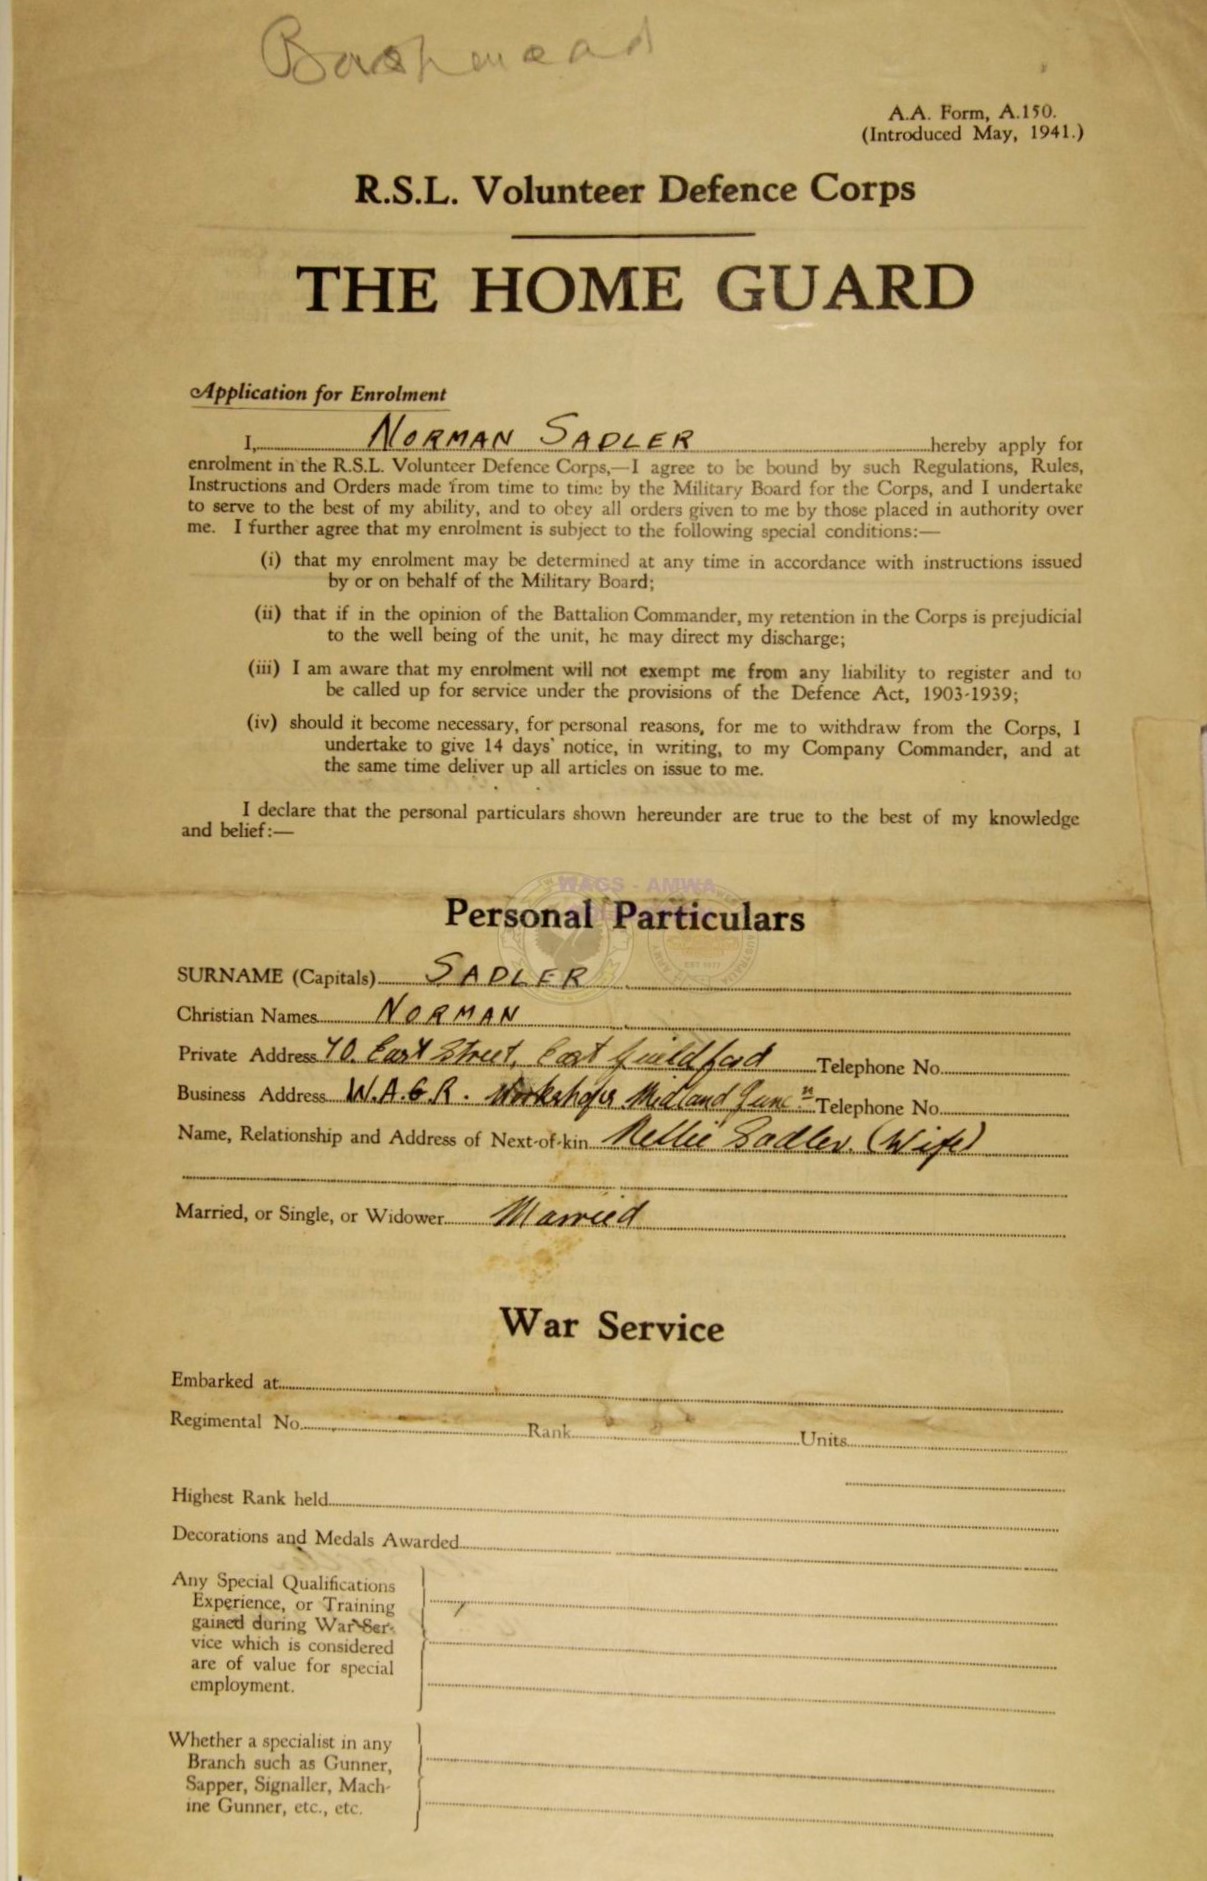 A.A. Form, A.150.
(Introduced May, 1941.)
R.S.L. Volunteer Defence Corps
THE HOME GUARD
Application for Enrolment
I, NORMAN SADLER hereby apply for
enrolment in the R.S.L. Volunteer Defence Corps,—I agree to be bound by such Regulations, Rules,
Instructions and Orders made from time to time by the Military Board for the Corps, and I undertake
to serve to the best of my ability, and to obey all orders given to me by those placed in authority over
me. I further agree that my enrolment is subject to the following special conditions:—
(i) that my enrolment may be determined at any time in accordance with instructions issued
by or on behalf of the Military Board;
(ii) that if in the opinion of the Battalion Commander, my retention in the Corps is prejudicial
to the well being of the unit, he may direct my discharge;
(iii) I am aware that my enrolment will not exempt me from any liability to register and to
be called up for service under the provisions of the Defence Act, 1903-1939;
(iv) should it become necessary, for personal reasons, for me to withdraw from the Corps, I
undertake to give 14 days' notice, in writing, to my Company Commander, and at
the same time deliver up all articles on issue to me.
I declare that the personal particulars shown hereunder are true to the best of my knowledge
and belief:—
WAGS - AMWA
Personal Particulars
SURNAME (Capitals) SADLER
Christian Names NORMAN
Private Address 70. East Street, East Guildford Telephone No.
Business Address W.A.G.R. Workshops Midland Juncⁿ Telephone No.
Name, Relationship and Address of Next-of-kin Nellie Sadler. (Wife)
Married, or Single, or Widower Married
War Service
Embarked at
Regimental No. Rank Units
Highest Rank held
Decorations and Medals Awarded
Any Special Qualifications
Experience, or Training
gained during War Ser-
vice which is considered
are of value for special
employment.
Whether a specialist in any
Branch such as Gunner,
Sapper, Signaller, Mach-
ine Gunner, etc., etc.